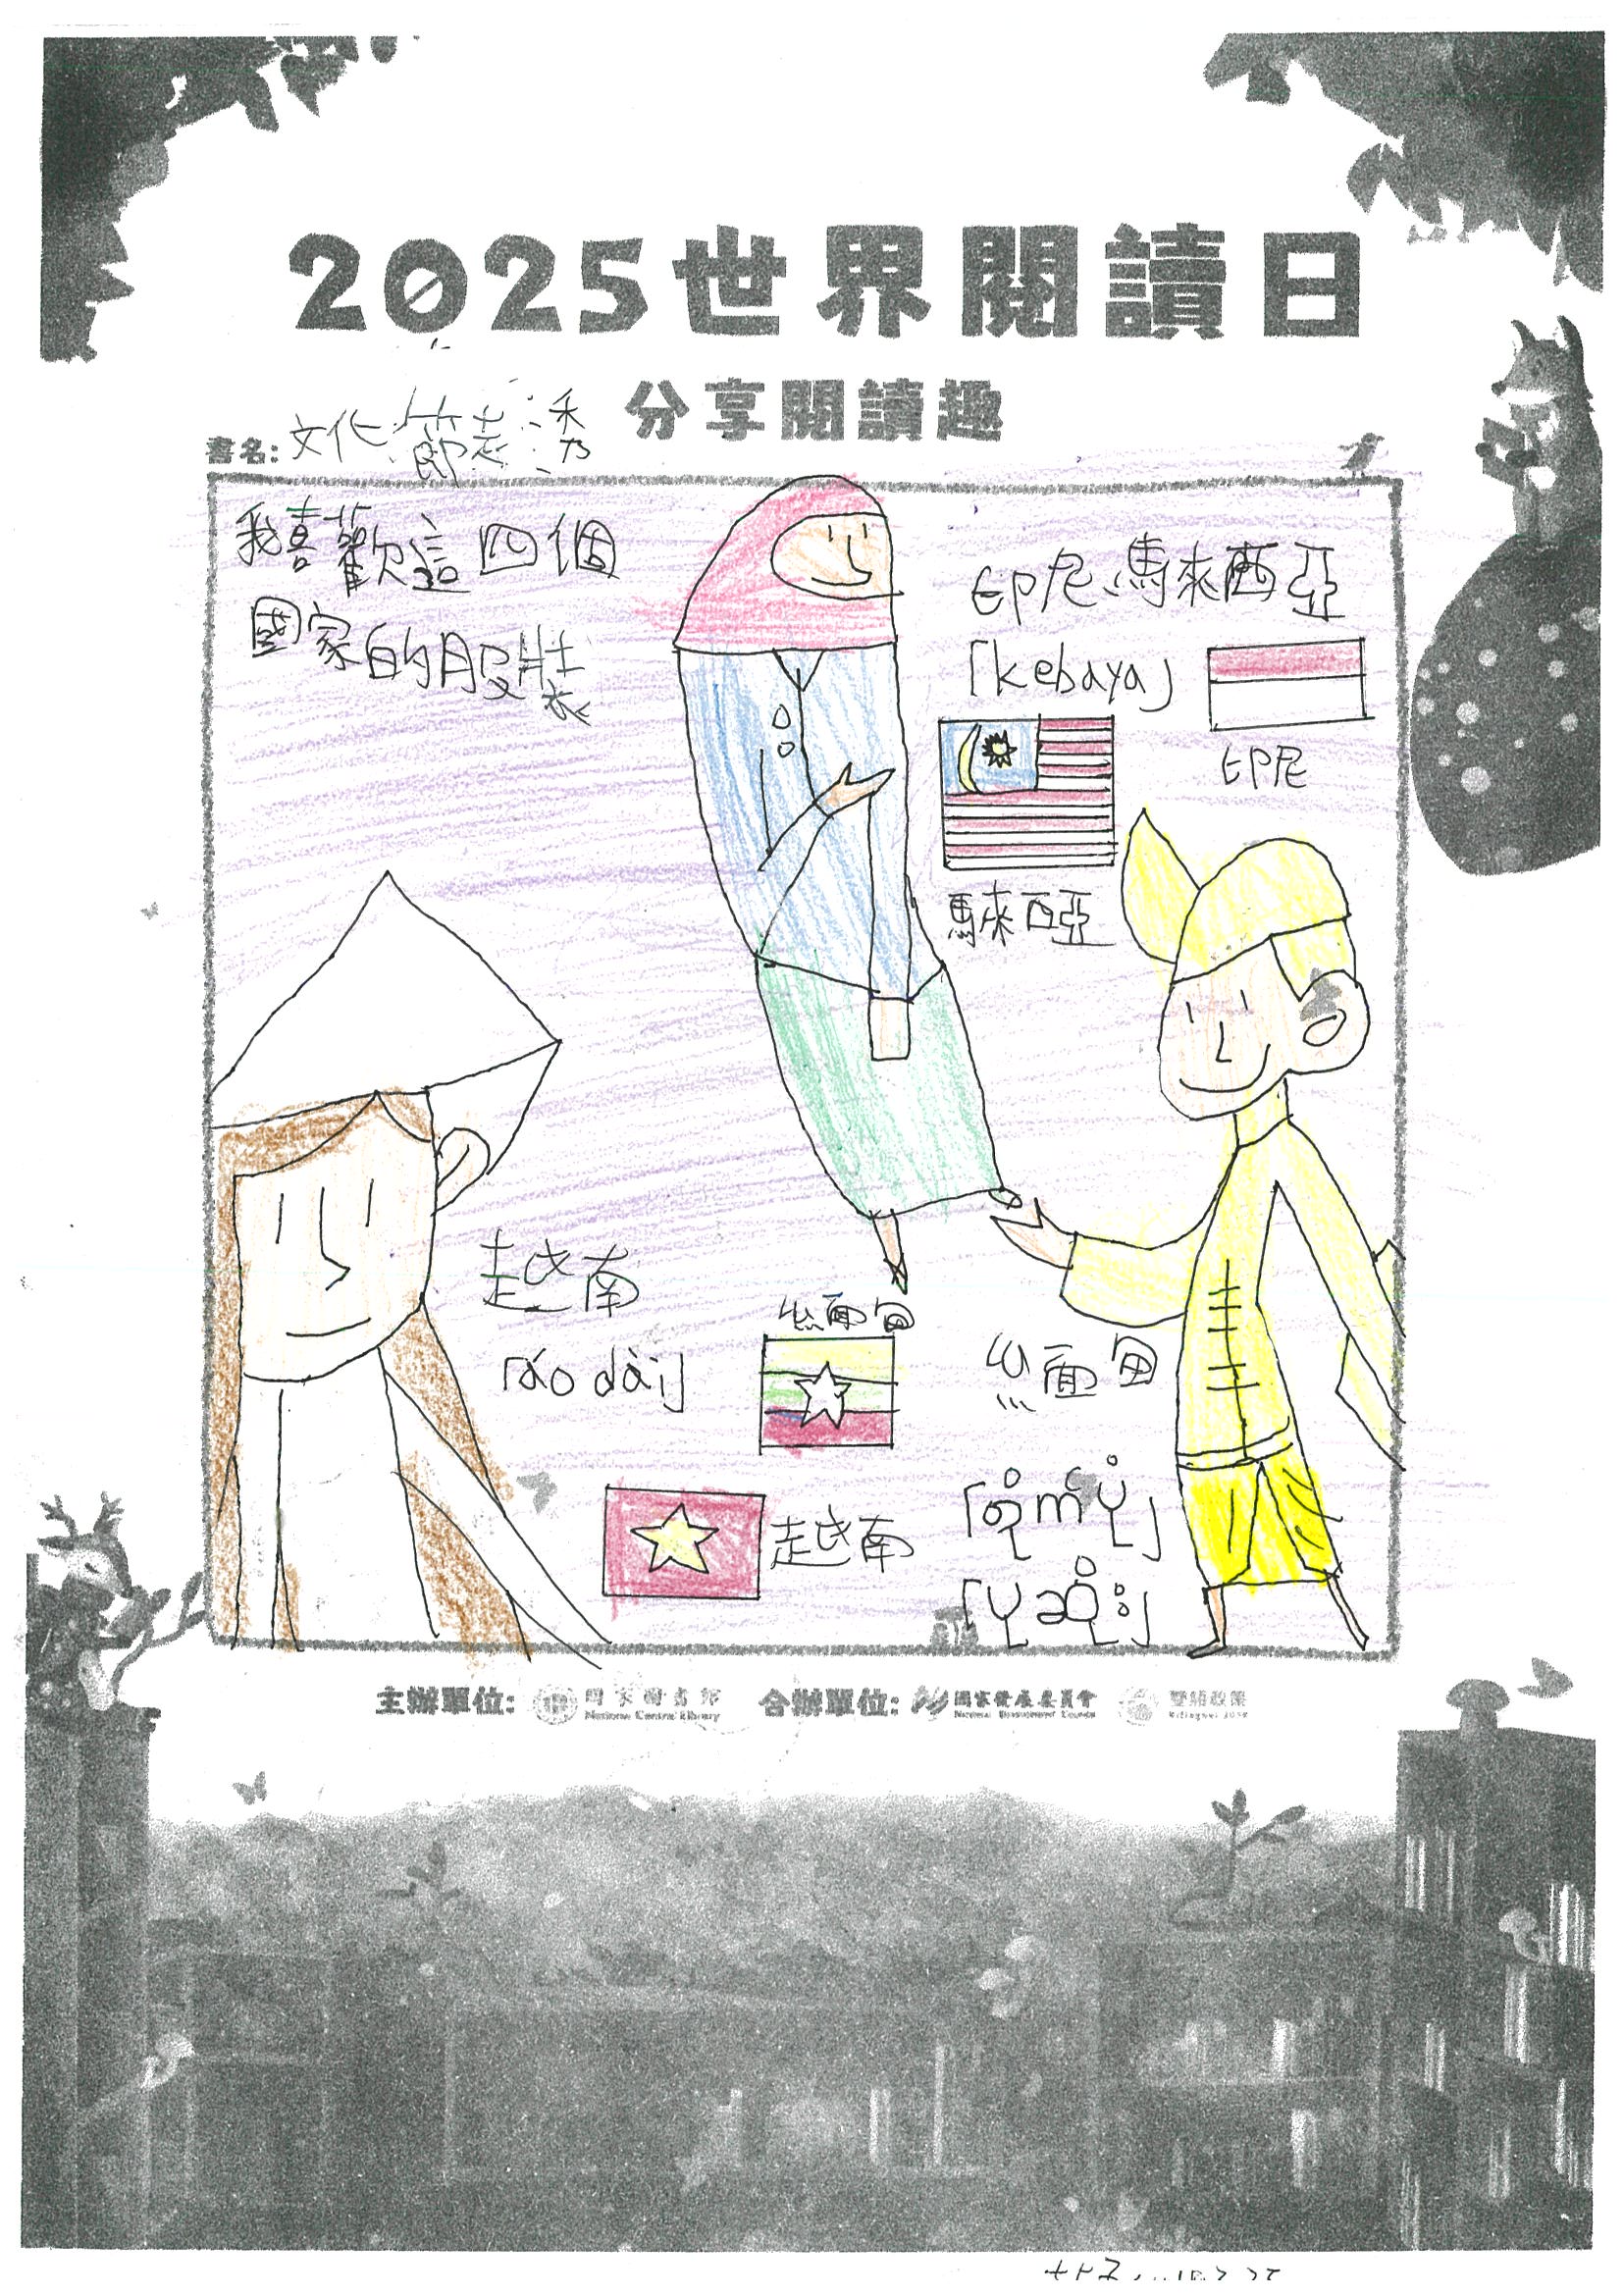 2025世界閱讀日
分享閱讀趣
書名: 文化
我喜歡這四個
國家的服裝
印尼、馬來西亞
「kebaya」
印尼
馬來西亞
越南
「áo dài」
緬甸
緬甸
越南
主辦單位: 國家圖書館 National Central Library 合辦單位: 國家發展委員會 National Development Council 雙語政策 Bilingual 2030